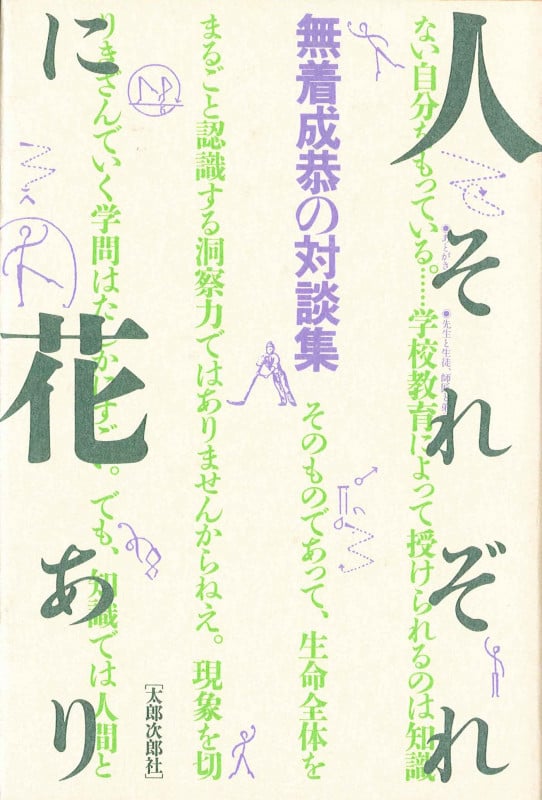 人それぞれ
に花あり
無着成恭の対談集
ない自分をもっている。……学校教育によって授けられるのは知識
そのものであって、生命全体を
まるごと認識する洞察力ではありませんからねえ。現象を切
りきざんでいく学問はたしかにすごい。でも、知識では人間と
●あとがき
●先生と生徒、師匠と弟
[太郎次郎社]